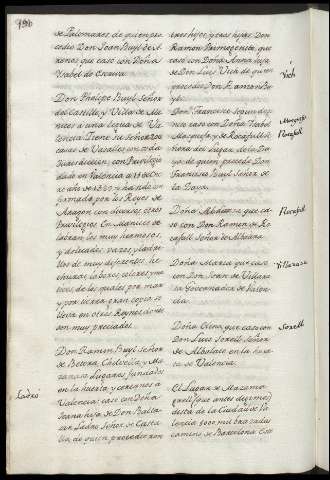 196
de Palomares, de quien pro
cedio Don Joan Buyl de A
renos que caso con Doña
Ysabel de
Don Phelipe Buyl Señor
del Castillo, y Villa de Ma
nices a una legua de Va
lencia. Tiene su Señor 200
casas de Vasallos con toda
Jurisdiccion, con Privilegio
dado en Valencia a 15 de
año de 1329 y ha sido con
firmado por los Reyes de
Aragon con diversos otros
Privilegios. En Manices se
labran los mas hermosos,
y delicados vasos, y
llos de muy diferentes he
churas, labores, colores, ma
tices, de los quales por mar
y por tierra gran copia se
lleva en otros Reynos donde
son muy preciados.
Don Ramon Buyl Señor
de Betera, Chelvella, y Ma
zanasa Lugares fundados
en la huerta y cercanos a
Valencia: caso con Doña
Joana hija de Don Balta
sar Ladro Señor de Casta
lla, de quien procedieron
Ladró
tres hijos, y tres hijas. Don
Ramon Primogenito, que
caso con Doña Anna hija
de Don Luis Vich de quien
procede Don Ramon Bu
yl.
Don Francisco segundo
nieto caso con Doña Ysabel
y de Rocafull
Señora del lugar de la Do
ya de quien procede Don
Francisco Buyl Señor de
la Doya.
Doña Aldonza que ca
so con Don Ramon de Ro
cafull Señor de Albatera
Doña Maria que caso
con Don Joan de Villara
sa Governador de Valen
cia.
Doña Elena que caso con
Don Luis Sorell Señor
de Albalate en la huer
ta de Valencia.
El Lugar de Mazama
grell (que antes dezimos)
dista de la Ciudad de Va
lencia 5000 mil
camino de Barcelona. Est
Vich
Rocafull
Rocafull
Villarasa
Sorell